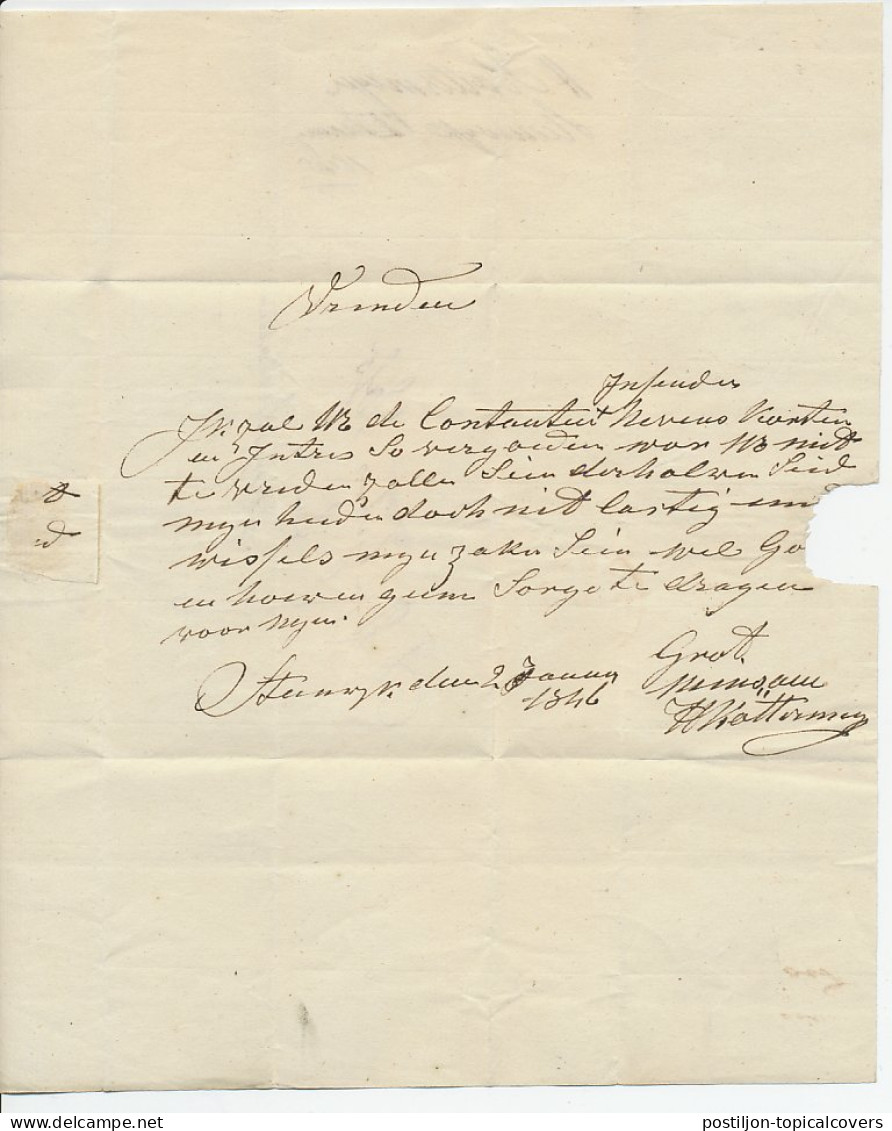 Vrinden
Insenden
Ik zal UE de Contanten Nevens Korten
en Intres So vergoeden war UE nidt
te vreden zallen Sein derhalven Seid
myn heeden doch nit lastig em
wissels myn zaken Sein wel Go
en hoeven geene Sorge te dragen
voor Myn.
Steenwyk den 2 Janny Groet
1846 minsaem
H Kötterming
t
d
postiljon-topicalcovers